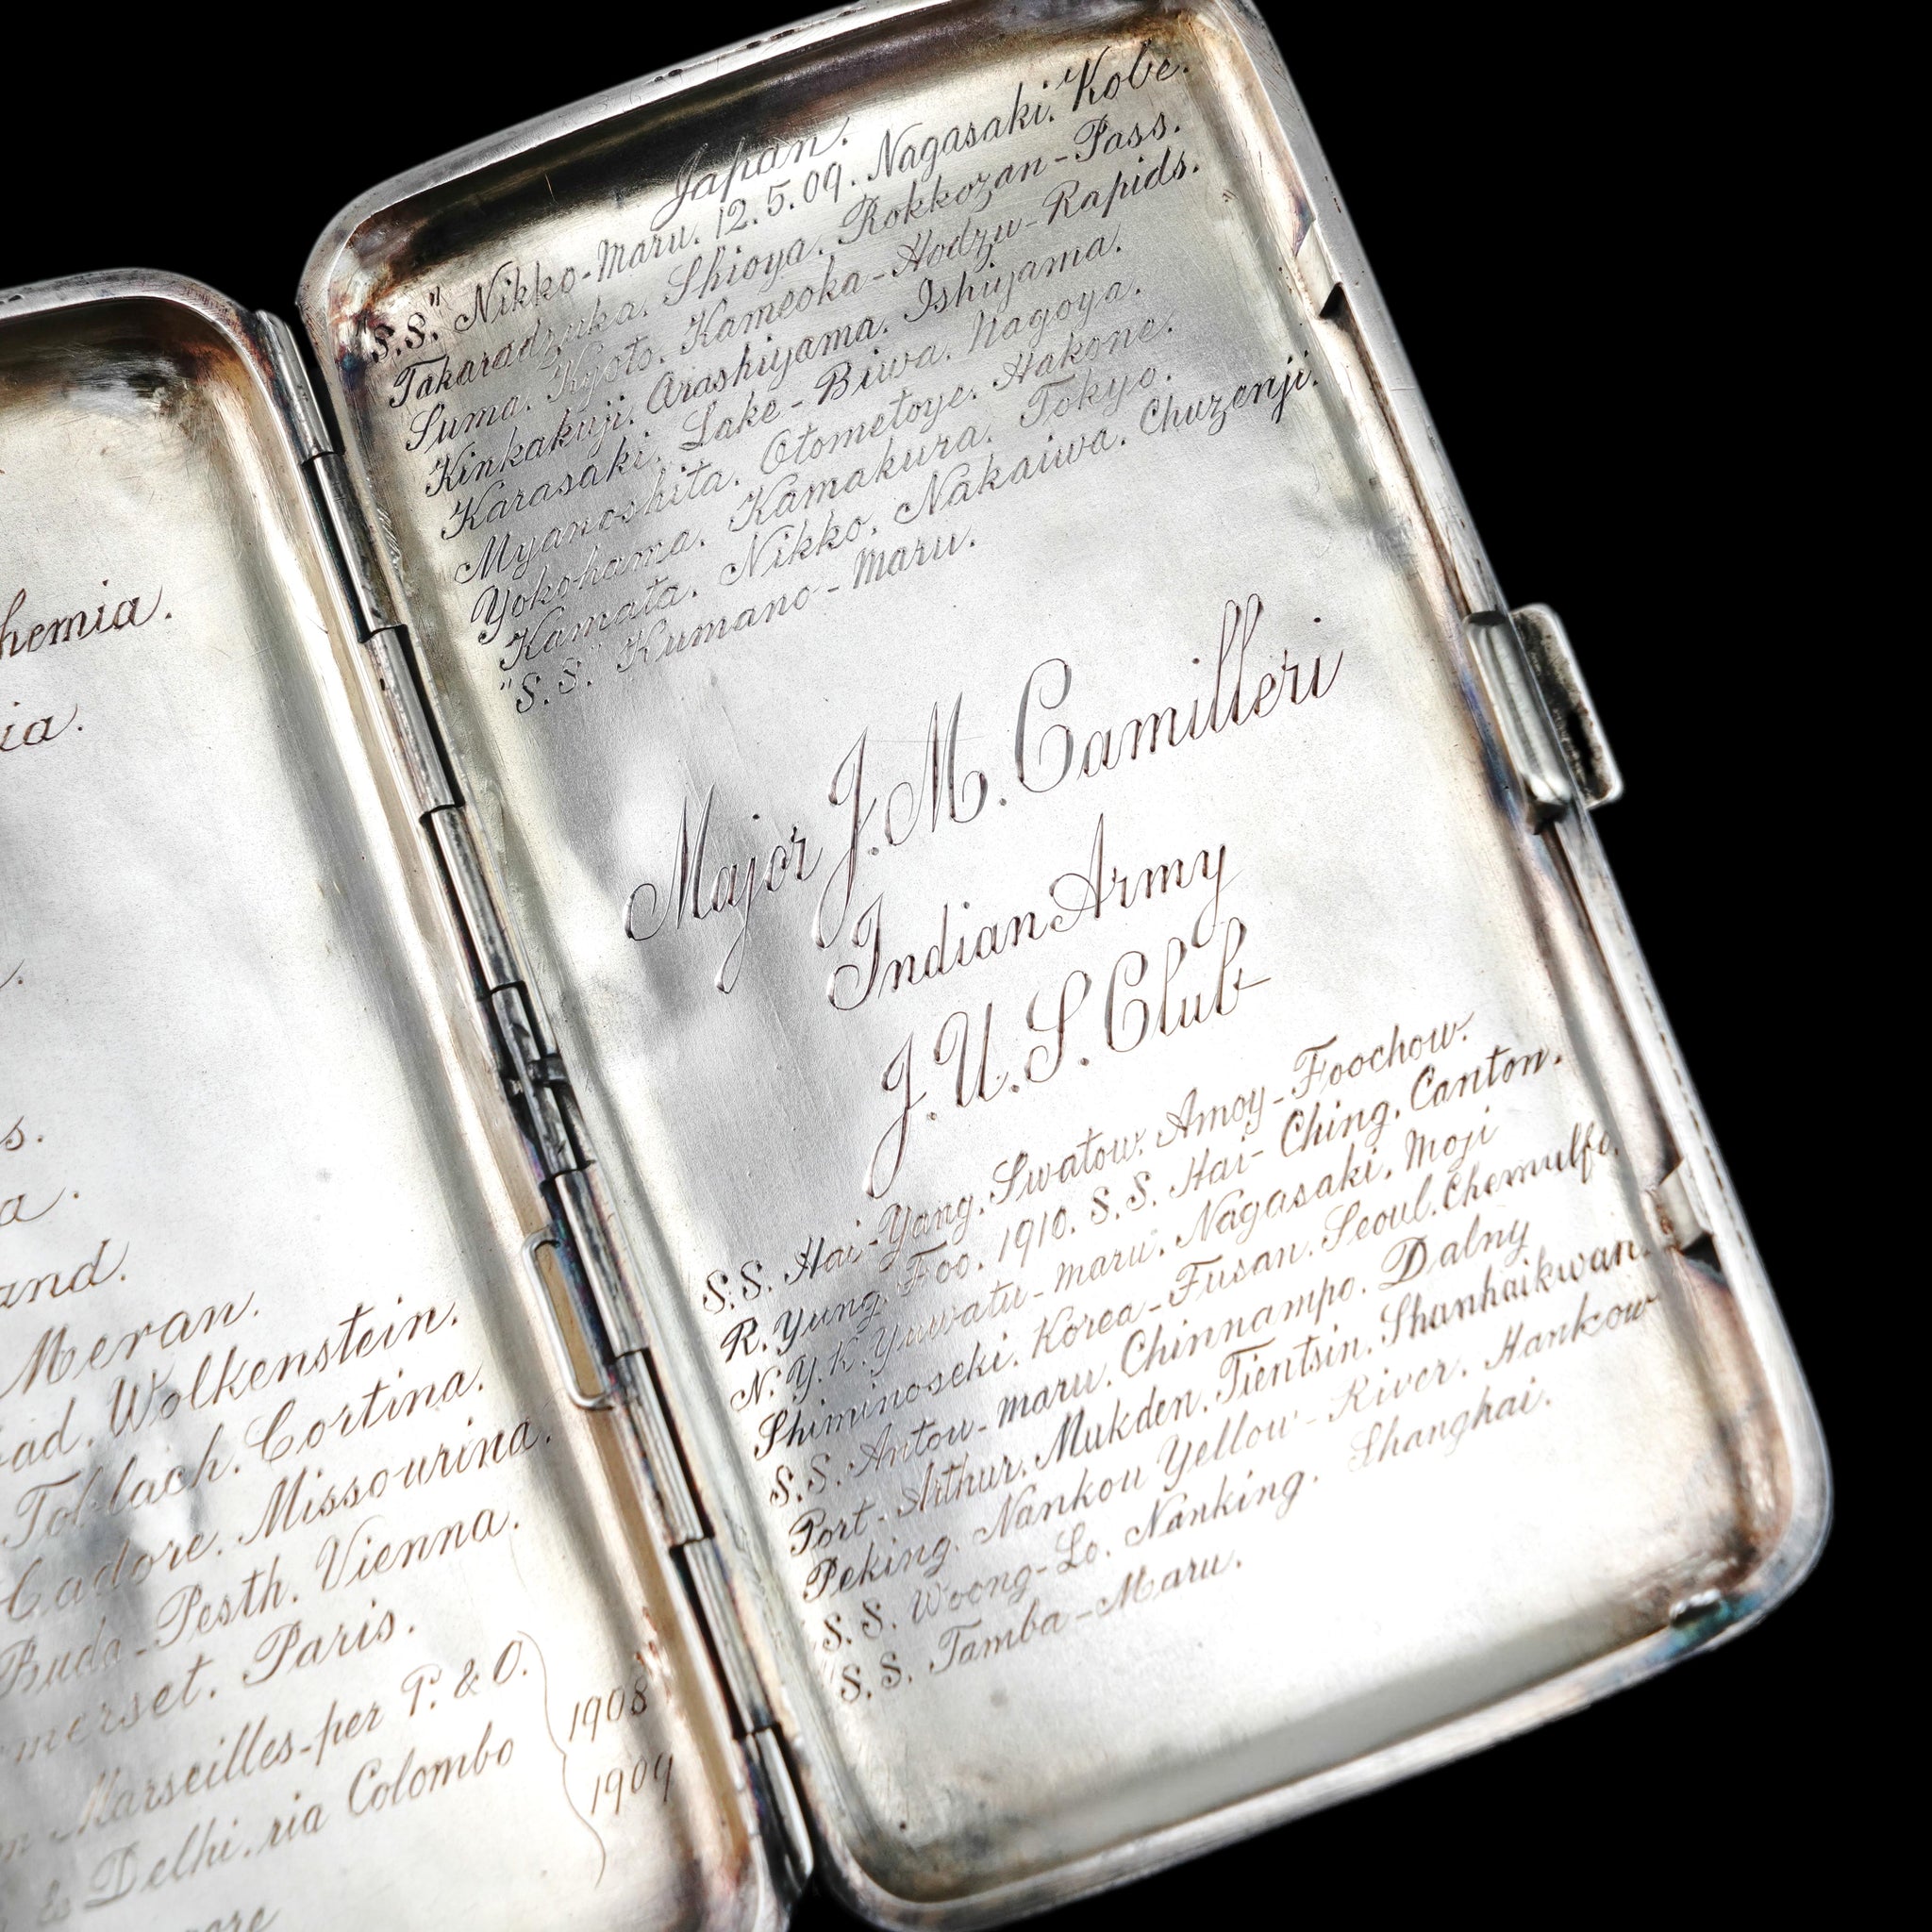 hemia.
ia.
s.
a.
and.
Meran.
ad. Wolkenstein.
Toblach. Cortina.
Cadore. Missourina.
Buda-Pesth. Vienna.
merset. Paris.
Marseilles-per P. & O.
& Delhi. via Colombo
1908
1909
ore
Japan.
"S.S." Nikko-Maru. 12.5.09. Nagasaki. Kobe.
Takaradzuka. Shioya. Rokkozan-Pass.
Suma. Kyoto. Kameoka-Hodzu-Rapids.
Kinkakuji. Arashiyama. Ishiyama.
Karasaki. Lake-Biwa. Nagoya.
Myanoshita. Otometoge. Hakone.
Yokohama. Kamakura. Tokyo.
Kamata. Nikko. Nakaiwa. Chuzenji.
"S.S." Kumano-Maru.
Major J.M. Camilleri
Indian Army
J.U.S. Club
S.S. Hai-Yang. Swatow. Amoy-Foochow.
R. Yung Foo. 1910. S.S. Hai-Ching. Canton.
N.Y.K. Yuwatu-maru. Nagasaki. Moji
Shiminoseki. Korea-Fusan. Seoul. Chemulfo.
S.S. Antou-maru. Chinnampo. Dalny
Port-Arthur. Mukden. Tientsin. Shanhaikwan.
Peking. Nankou Yellow-River. Hankow
S.S. Woong-Lo. Nanking. Shanghai.
"S.S. Tamba-Maru.